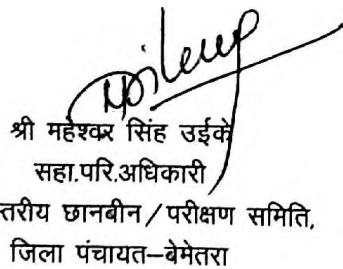 श्री महेश्वर सिंह उईके
सहा.परि.अधिकारी
स्तरीय छानबीन/परीक्षण समिति,
जिला पंचायत–बेमेतरा